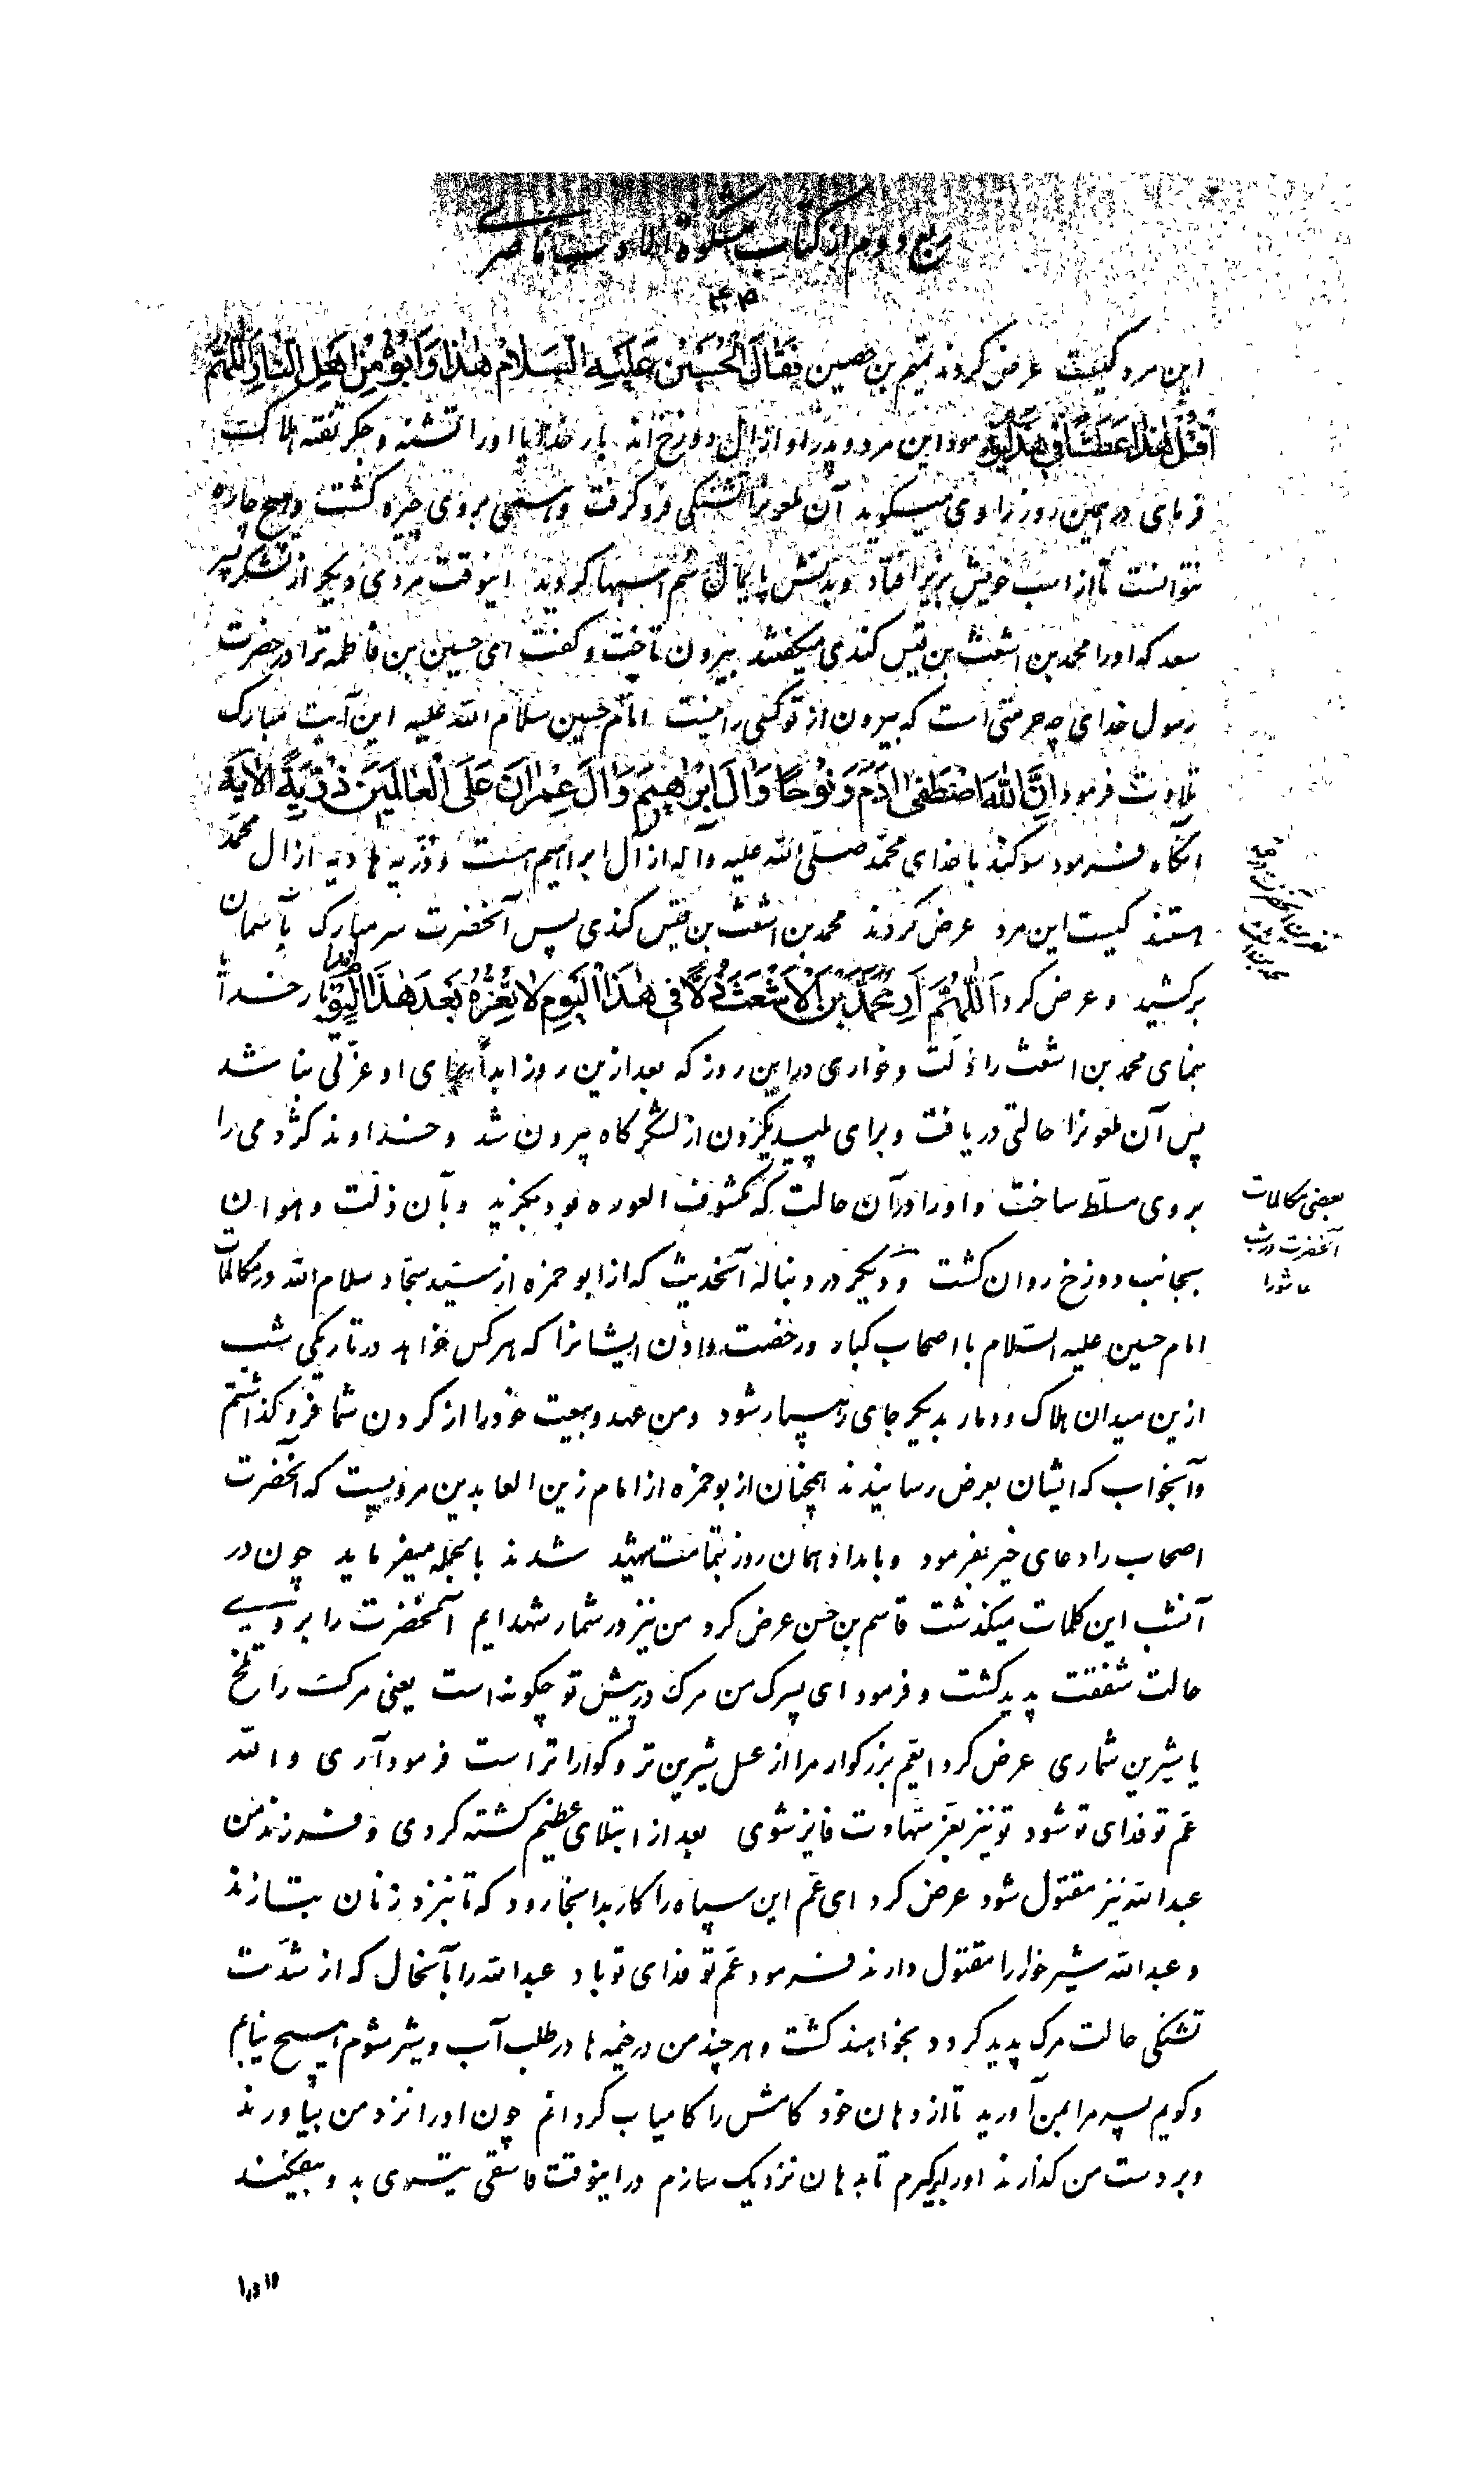 ربع دوم از کتاب مشکوة الادب ناصری
این مرد کیست عرض کردند تمیم بن حصین فَقَالَ الْحُسَیْنُ عَلَیْهِ السَّلامُ هٰذا وَاَبُوهُ مِنْ اَهْلِ النّارِ اَللّٰهُمَّ
اُقْتُلْ هٰذا عَطَشًا فی هٰذَا الیَوْمِ فرمود این مرد و پدر او از اهل دوزخ اند بار خدایا او را تشنه و جگر تفته هلاکت
فرمای در همین روز راوی میگوید آن ملعونرا تشنگی فرو گرفت و بروی چیره گشت و هیچ چاره
نتوانست تا از اسب خویش بزیر افتاد و بدنش پایمال سُم اسبها گردید اینوقت مردی دیگر از لشکر پسر
سعد که او را محمد بن اشعث بن قیس کندی میگفتند بیرون تاخت و گفت ای حسین بن فاطمه ترا در حضرت
رسول خدای چه حرمتی است که بیرون از تو کسی را نیست امام حسین سلام الله علیه این آیت مبارک
تلاوت فرمود اِنَّ اللهَ اصْطَفیٰ اٰدَمَ وَنُوْحًا وَاٰلَ اِبْرٰهیمَ وَاٰلَ عِمْرٰانَ عَلَی الْعٰالَمینَ ذُرّیَّةً الاٰیَة
آنگاه فرمود سوگند با خدای محمّد صلّی الله علیه وآله از آل ابراهیم است و ذریه هادیه از آل محمّد
هستند کیست این مرد عرض کردند محمد بن اشعث بن قیس کندی پس آنحضرت سر مبارک بآسمان
برکشید و عرض کرد اَللّٰهُمَّ اَرِ مُحَمَّدَ بْنَ الْاَشْعَثِ ذُلًّا فی هٰذَا الْیَوْمِ لا تُعِزُّهُ بَعْدَ هٰذَا الْیَوْمِ اَبَدًا بار خدایا
بنمای محمد بن اشعث را ذلّت و خواری در این روز که بعد ازین روز ابداً برای او عزّتی نباشد
پس آن ملعونرا حالتی دریافت و برای پلیدی کردن از لشکرگاه بیرون شد و خداوند کژدمی را
بروی مسلّط ساخت و او را در آن حالت که مکشوف العوره بود بگزید و بآن ذلّت و هوان
بجانب دوزخ روان گشت و دیگر در دنباله آنحدیث که از ابو حمزه از سیّد سجّاد سلام الله در مکالمات
امام حسین علیه السّلام با اصحاب کبار و رخصت دادن ایشانرا که هر کس خواهد در تاریکی شب
ازین میدان هلاک و دمار بدیگر جای رهسپار شود و من عهد و بیعت خود را از گردن شما فرو گذاشتم
و آنجواب که ایشان بعرض رسانیدند همچنان از بو حمزه از امام زین العابدین مرویست که آنحضرت
اصحاب را دعای خیر بفرمود و بامداد همان روز بتمامت شهید شدند بالجمله میفرماید چون در
آنشب این کلمات میگذشت قاسم بن حسن عرض کرد من نیز در شمار شهدایم آنحضرت را بر وی
حالت شفقت پدید گشت و فرمود ای پسرک من مرگ در پیش تو چگونه است یعنی مرگ را تلخ
یا شیرین شماری عرض کرد ایعَم بزرگوار مرا از عسل شیرین تر و گواراتر است فرمود آری والله
عَم تو فدای تو شود تو نیز بفیض شهادت فایز شوی بعد از ابتلای عظیم کشته گردی و فرزند من
عبدالله نیز مقتول شود عرض کرد ای عَم این سپاه را کار بدانجا رود که تا بنزد زنان بتازند
و عبدالله شیر خوار را مقتول دارند فرمود عَم تو فدای تو باد عبدالله را بآنحال که از شدّت
تشنگی حالت مرگ پدید گردد بخواهند کشت و هر چند من در خیمه ها در طلب آب و شیر شوم هیچ نیابم
و گویم پسر مرا بمن آورید تا از دهان خود کامش را کامیاب گردانم چون او را نزد من بیاورند
و بر دست من گذارند او را برگیرم تا بدهان نزدیک سازم در اینوقت فاسقی تیری بدو بیفکند
بعضی مکالمات
آنحضرت در شب
عاشورا